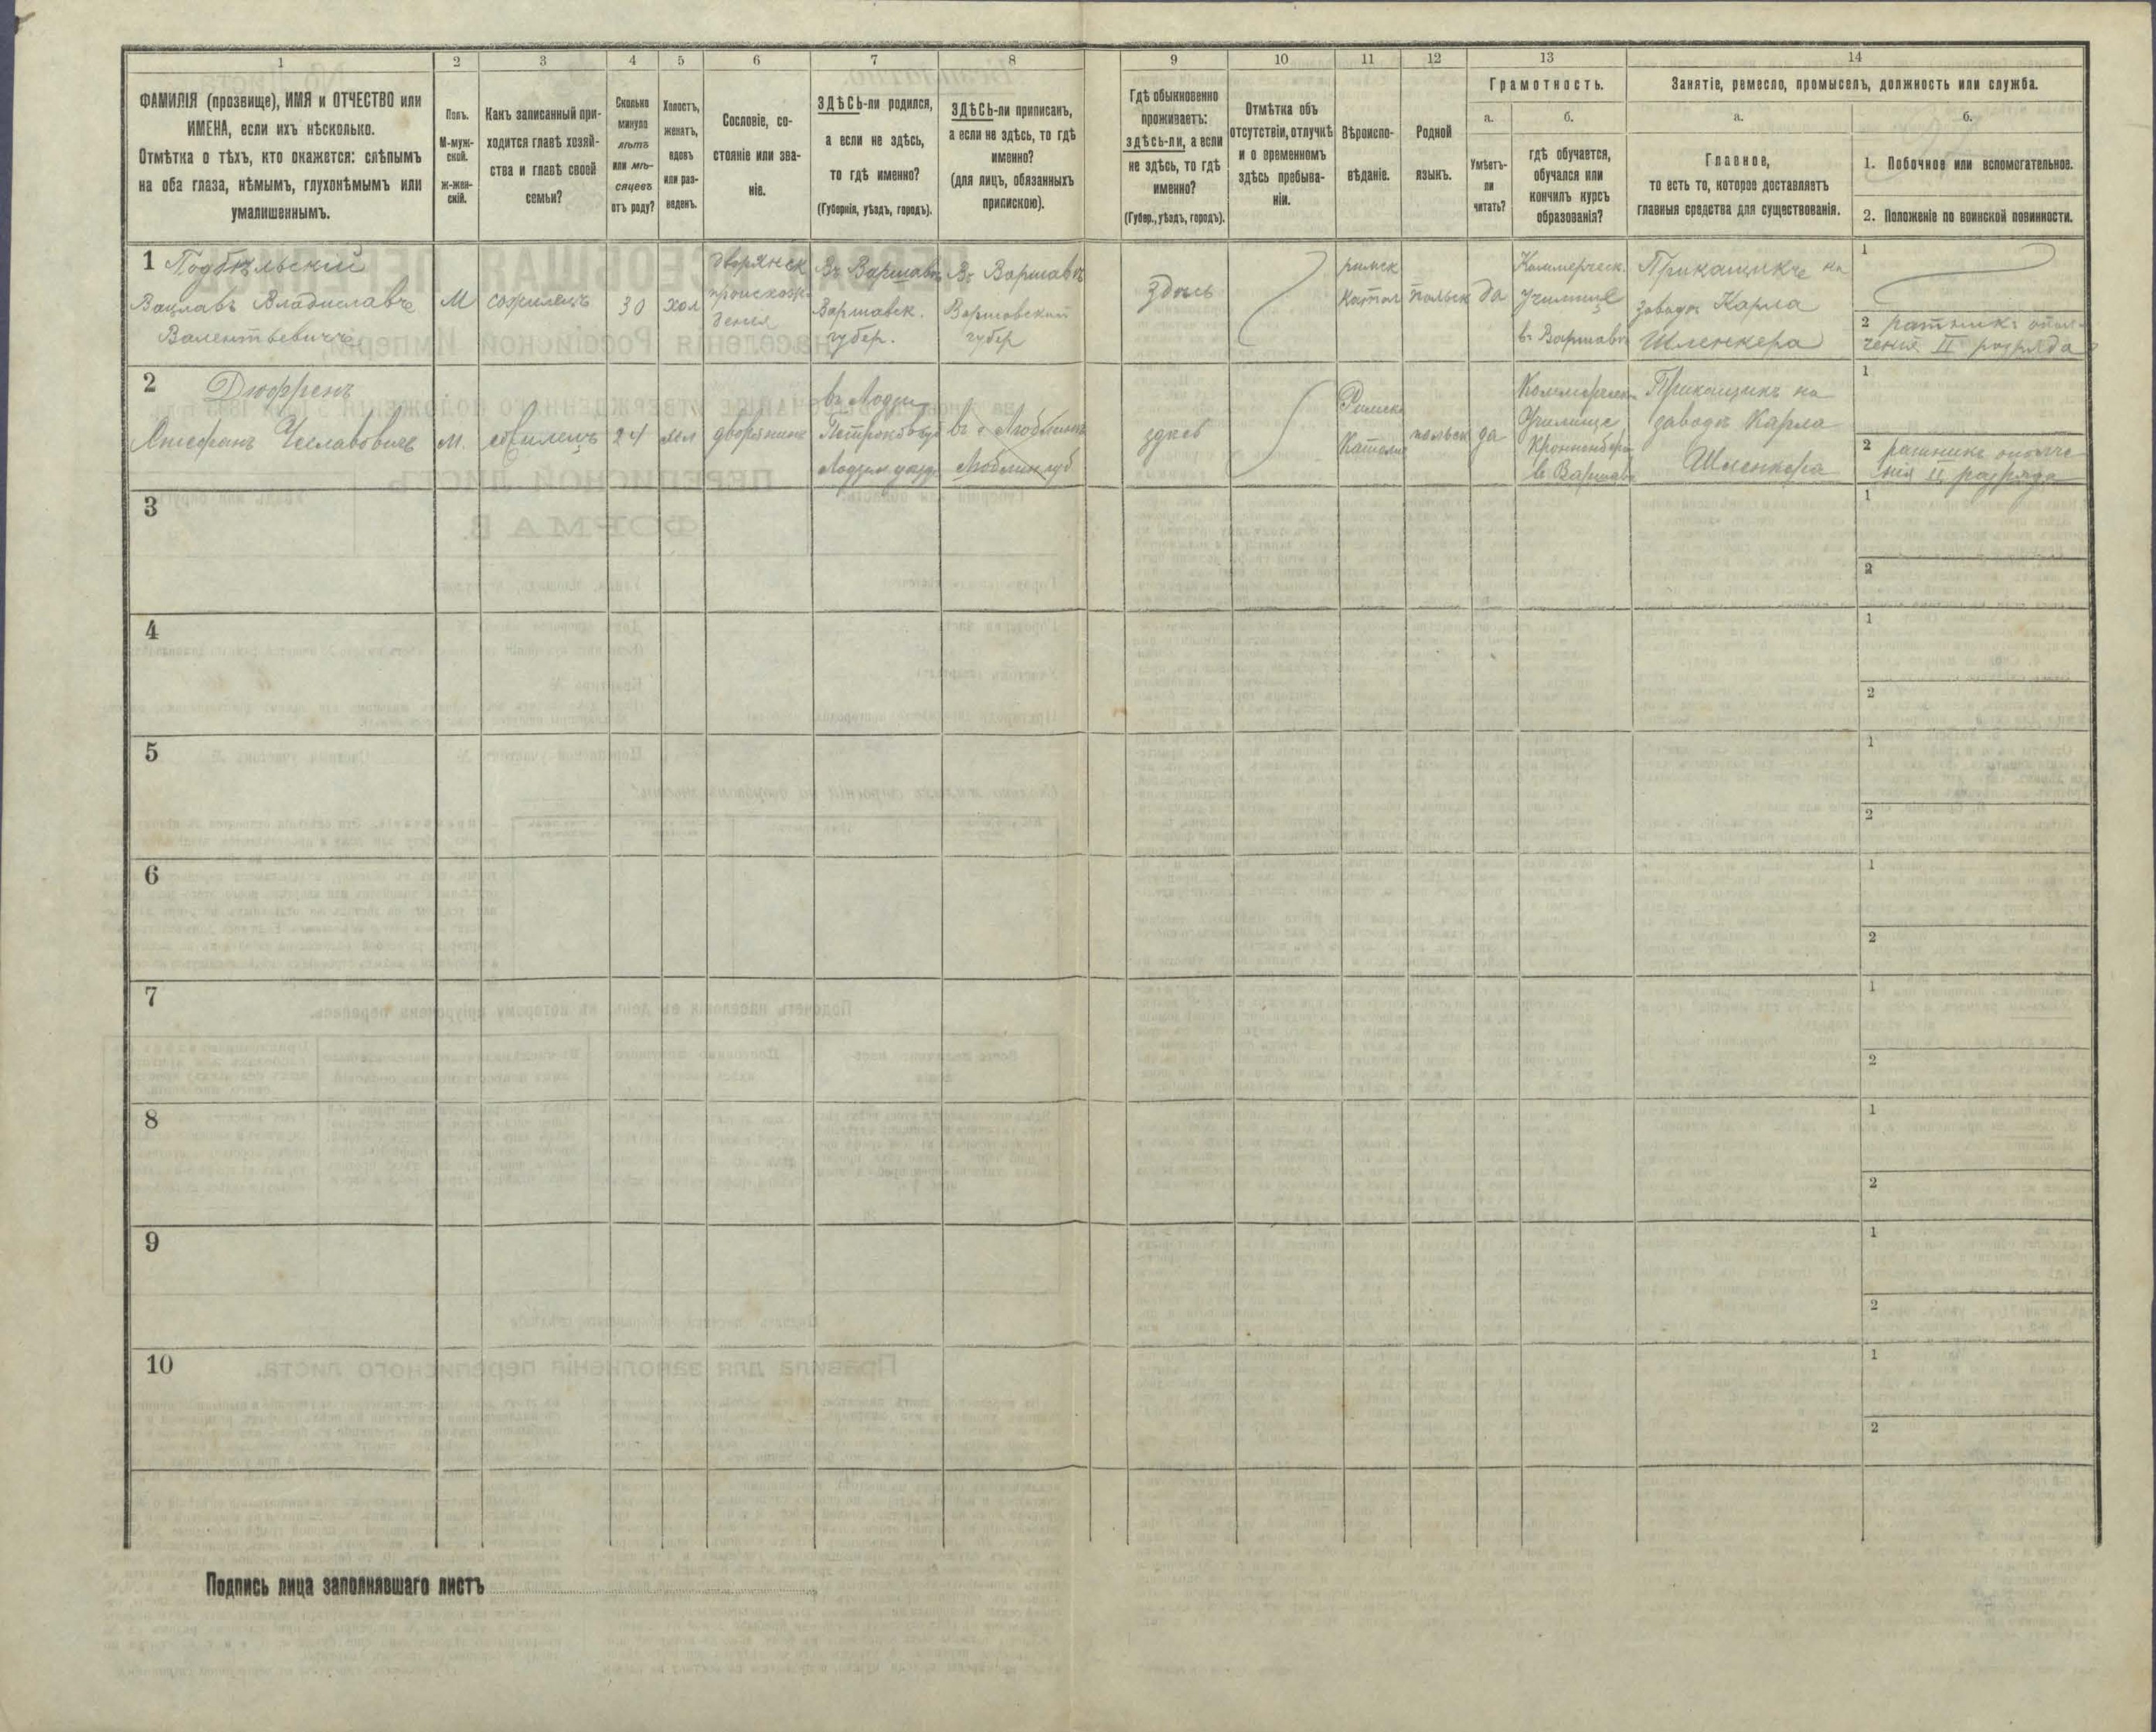 1
2
3
4
5
6
7
8
9
10
11
12
13
14
ФАМИЛІЯ (прозвище), ИМЯ и ОТЧЕСТВО или
ИМЕНА, если ихъ нѣсколько.
Отмѣтка о тѣхъ, кто окажется: слѣпымъ
на оба глаза, нѣмымъ, глухонѣмымъ или
умалишеннымъ.
Полъ.
М-муж-
ской.
ж-жен-
скій.
Какъ записанный при-
ходится главѣ хозяй-
ства и главѣ своей
семьи?
Сколько
минуло
лѣтъ
или мѣ-
сяцевъ
отъ роду?
Холостъ,
женатъ,
вдовъ
или раз-
веденъ.
Сословіе, со-
стояніе или зва-
ніе.
ЗДѢСЬ-ли родился,
а если не здѣсь,
то гдѣ именно?
(Губернія, уѣздъ, городъ).
ЗДѢСЬ-ли приписанъ,
а если не здѣсь, то гдѣ
именно?
(для лицъ, обязанныхъ
припискою).
Гдѣ обыкновенно
проживаетъ:
здѣсь-ли, а если
не здѣсь, то гдѣ
именно?
(Губер., уѣздъ, городъ).
Отмѣтка объ
отсутствіи, отлучкѣ
и о временномъ
здѣсь пребыва-
ніи.
Вѣроиспо-
вѣданіе.
Родной
языкъ.
Грамотность.
а.
Умѣетъ-
ли
читать?
б.
гдѣ обучается,
обучался или
кончилъ курсъ
образованія?
Занятіе, ремесло, промыселъ, должность или служба.
а.
Главное,
то есть то, которое доставляетъ
главныя средства для существованія.
б.
1. Побочное или вспомогательное.
2. Положеніе по воинской повинности.
1 Подбѣльскій
Вацлавъ Владиславъ
Валентьевичъ
М
сожилецъ
30
хол
дворянск
происхож-
денія
Въ Варшавѣ
Варшавск.
губер.
Въ Варшавѣ
Варшавский
губер
здѣсь
римск
катол
польск
да
Коммерческ.
Училище
въ Варшавѣ
Прикащикъ на
заводѣ Карла
Шленкера
1
2 ратникъ опол-
ченія II разряда
2 Дюфренъ
Стефанъ Чеславовичъ
м.
сожилецъ
24
хол
дворянинъ
въ Лодзи
Петроковской
Лодзин уезда
въ г. Люблинѣ
Люблин губ
здесь
Римско
Католич
польск
да
Коммерческ
Училище
Кроненберга
въ Варшавѣ
Прикащикъ на
заводѣ Карла
Шленкера
1
2 ратникъ ополче
нія II разряда
3
1
2
4
1
2
5
1
2
6
1
2
7
1
2
8
1
2
9
1
2
10
1
2
Подпись лица заполнявшаго листъ